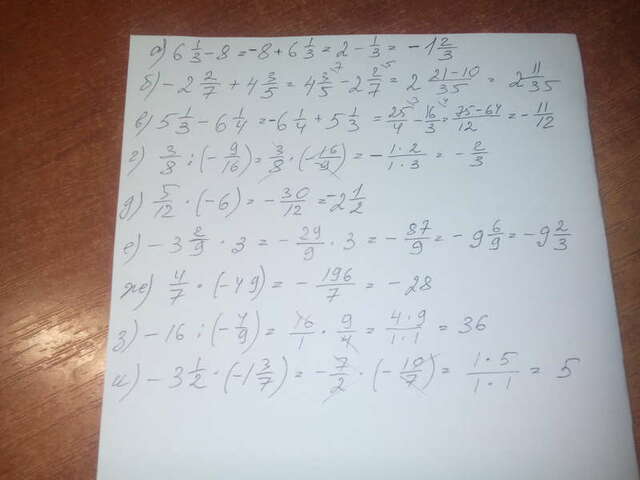 а) 6 1/3 - 8 = -8 + 6 1/3 = 2 - 1/3 = -1 2/3
б) -2 2/7 + 4 3/5 = 4 3/5 - 2 2/7 = 2 21-10/35 = 2 11/35
в) 5 1/3 - 6 1/4 = -6 1/4 + 5 1/3 = 25/4 - 16/3 = 75-64/12 = -11/12
г) 3/8 : (-9/16) = 3/8 · (-16/9) = -1·2/1·3 = -2/3
д) 5/12 · (-6) = -30/12 = -2 1/2
е) -3 2/9 · 3 = -29/9 · 3 = -87/9 = -9 6/9 = -9 2/3
ж) 4/7 · (-49) = -196/7 = -28
з) -16 : (-4/9) = 16/1 · 9/4 = 4·9/1·1 = 36
и) -3 1/2 · (-1 3/7) = -7/2 · (-10/7) = 1·5/1·1 = 5